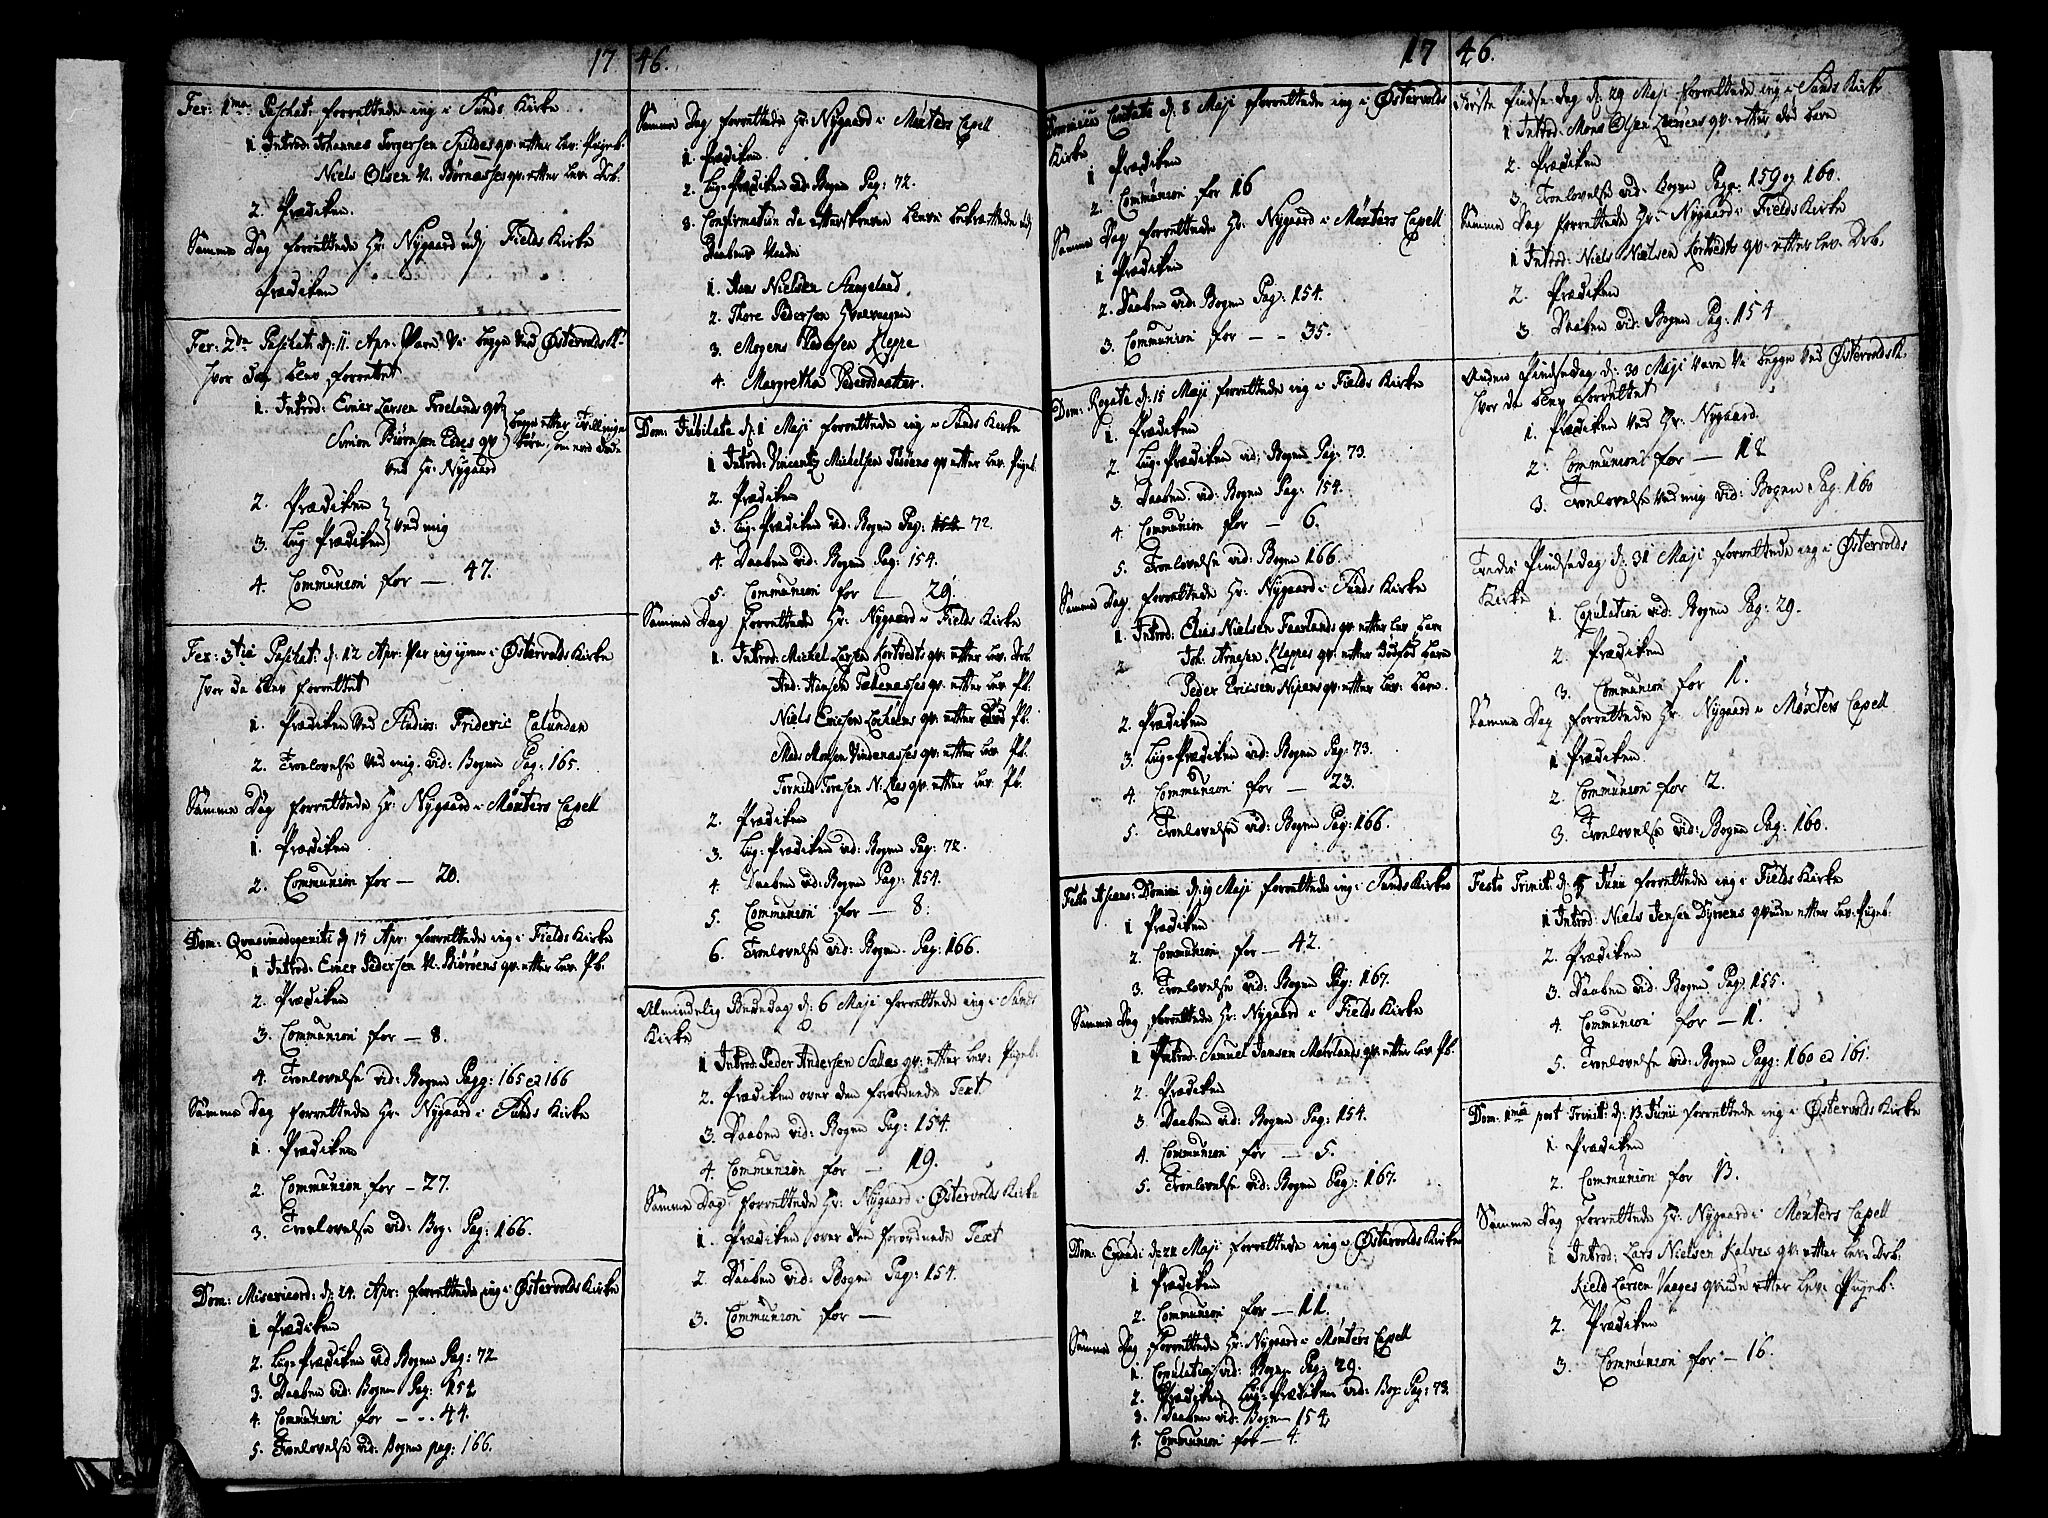 17 46.
Fer: 1ma Paschat: forrettede ieg i Sunds Kirke
1 Introd: Johannes Torgersen Spildes qv: etter lev: Pigeb:
Niels Olsen N: Børnæsses qv: etter lev: Drb.
2. Prædiken.
Samme Dag forrettede Hr: Nygaard udj Fields Kirke
Prædiken
Fer: 2da Paschat: d: 11 Apr: Vare Vi begge ved Østervolds K:
hvor da blev forrettet
1. Introd: Einer Larsen Frøelands qv:
Simon Biørnsen qv: begge etter Tvillinge
ved Hr: Nygaard
2. Prædiken
3. Lig-Prædiken ved mig
4. Communion for — 47.
Fer: 3tia Paschat: d: 12 Apr: Var ieg igien i Østervolds Kirke
hvor da blev forrettet
1. Prædiken ved Studios: Frideric Calundan
2. Trolovelse ved mig vid: Bogen Pag: 165.
Samme Dag forrettede Hr: Nygaard i Møxters Capell
1. Prædiken
2. Communion for — 20.
Dom: Qvasimodogeniti d: 17 Apr: forrettede ieg i Fields Kirke
1 Introd: Einer Pedersen N. Biørøens qv: etter lev: Pb.
2. Prædiken
3. Communion for — 8.
4. Trolovelse vid: Bogen Pagg: 165 et 166
Samme Dag forrettede Hr: Nygaard i Sunds Kirke
1. Prædiken
2. Communion for — 27.
3. Trolovelse vid: Bog: Pag: 166.
Dom: Misericord: d: 24. Apr: forrettede ieg i Østervolds Kirke
1 Prædiken
2. Lig-Prædiken vid Bogen Pag: 72
3. Daaben vid: Bogen Pag: 154
4. Communion for - - . 44.
5. Trolovelse vid: Bogen pag: 166.
Samme Dag forrettede Hr: Nygaard i Møxters Capell
1. Prædiken
2. Lig-Prædiken vid: Bogen Pag: 72.
3. Confirmation da etterskrevne bleve bekræftede udj
Daabens Naade
1. Hans Nielsen Stangeland
2. Thore Pedersen
3. Mogens Pedersen Kleppe
4. Margretha Pedersdaatter.
Dom: Jubilate d: 1 Maji forrettede ieg i Sunds Kirke
1 Introd: Vincentz Mickelsen qv: etter lev: Pigeb.
2. Prædiken
3. Lig-Prædiken vid: Bogen Pag: 72.
4. Daaben vid: Bogen Pag: 154.
5. Communion for — 29.
Samme Dag forrettede Hr: Nygaard i Fields Kirke
1. Introd: Mickel Larsen Kortvedts qv: etter lev: Drb.
And: Hansen qv: etter lev: Pb.
Niels Ericsen qv: etter Pb.
Mads Monsen Vindenæsses qv: etter lev: Pb.
Tornils Toresen N: Aases qv: etter lev: Pb.
2. Prædiken
3. Lig-Prædiken vid: Bogen Pag: 72.
4. Daaben vid: Bogen Pag: 154.
5. Communion for — 8.
6. Trolovelse vid: Bogen Pag: 166.
Almindelig Bededag d: 6 Maji forrettede ieg i Sunds
Kirke
1 Introd: Peder Andersen qv: etter lev: Pigeb.
2. Prædiken over den forordnede Text
3. Daaben vid: Bogen Pag: 154.
4. Communion for — 19.
Samme Dag forrettede Hr: Nygaard i Østervolds Kirke
1. Prædiken over den forordnede Text
2. Daaben vid: Bogen Pag: 154.
3. Communion for —
17 46.
Dominica Cantate d: 8 Maji forrettede ieg i Østervolds
Kirke
1 Prædiken
2. Communion for 16
Samme Dag forrettede Hr: Nygaard i Møxters Capell
1 Prædiken
2. Daaben vid: Bogen Pag: 154.
3. Communion for - - 35.
Dom: Rogate d: 15 Maji forrettede ieg i Fields Kirke
1. Prædiken
2. Lig-Prædiken vid: Bogen Pag: 73.
3. Daaben vid: Bogen Pag: 154.
4. Communion for — 6.
5. Trolovelse vid: Bogen 166.
Samme Dag forrettede Hr: Nygaard i Sunds Kirke
1. Introd: Elias Nielsen qv: etter lev: barn
Joh: Arnesen Kleppes qv: etter dødfød barn
Peder Ericsen qv: etter lev: barn.
2. Prædiken
3. Lig-Prædiken vid: Bogen Pag: 73.
4. Communion for — 23.
5. Trolovelse vid: Bogen Pag: 166.
Festo Ascens: Domini d: 19 Maji forrettede ieg i Sunds Kirke
1 Prædiken
2. Communion for — 42.
3. Trolovelse vid: Bogen Pag: 167.
Samme Dag forrettede Hr: Nygaard i Fields Kirke
1 Introd: Samuel Jansen qv: etter lev: Pb.
2. Prædiken
3. Daaben vid: Bogen Pag: 154.
4. Communion for — 5.
5. Trolovelse vid: Bogen Pag: 167.
Dom: Exaudi d: 22 Maji forrettede ieg i Østervolds Kirke
1 Prædiken
2. Communion for — 11.
Samme Dag forrettede Hr: Nygaard i Møxters Capell
1. Copulation vid: Bogen Pag: 29.
2. Prædiken, Lig-Prædiken vid: Bog: Pag: 73.
3. Daaben vid: Bogen 154
4. Communion for — 4.
Første Pindse-Dag d: 29 Maji forrettede ieg i Sunds Kirke
1 Introd: Mons Olsen qv: etter død barn
2. Prædiken
3. Trolovelse vid: Bogen Pagg: 159 og 160.
Samme Dag forrettede Hr: Nygaard i Fields Kirke
1 Introd: Niels Nielsen Kortvedts qv: etter lev: Drb.
2. Prædiken
3 Daaben vid: Bogen Pag: 154
Anden Pindsedag d: 30 Maji Vare Vi begge ved Østervolds K.
hvor da blev forrettet
1. Prædiken ved Hr: Nygaard
2. Communion for — 18
3. Trolovelse ved mig vid: Bogen Pag: 160
Tredie Pindsedag d: 31 Maji forrettede ieg i Østervolds
Kirke
1. Copulation vid: Bogen Pag: 29.
2. Prædiken
3. Communion for 1.
Samme Dag forrettede Hr: Nygaard i Møxters Capell
1 Prædiken
2. Communion for 2.
3. Trolovelse vid: Bogen Pag: 160.
Festo Trinit: d: 5 Junii forrettede ieg i Fields Kirke
1 Introd: Niels Jensen Dyrøens qvinde etter lev: Pigeb:
2. Prædiken
3. Daaben vid: Bogen Pag: 155.
4. Communion for — 1.
5. Trolovelse vid: Bogen Pagg: 160 et 161.
Dom: 1ma post Trinit: d: 13 Junii forrettede ieg i Østervolds Kirke
1. Prædiken
2. Communion for 13.
Samme Dag forrettede Hr: Nygaard i Møxters Capell
1 Introd: Lars Nielsen Kalves qv: etter lev: Drb.
Kield Larsen Vaages qvinde etter lev: Pigeb:
2. Prædiken
3. Communion for — 16.